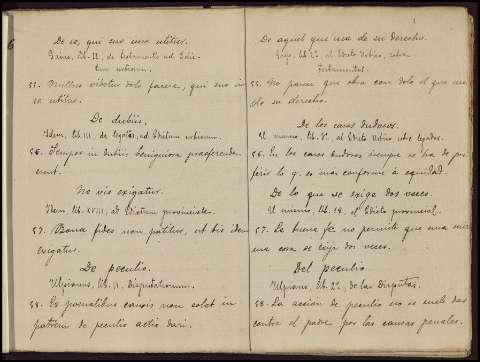 De eo, qui suo iure utitur.
Gaius, lib. II, de testamentis ad Edic-
tum urbicum.
55. Nullus videtur dolo facere, qui suo iu-
re utitur.
De dubiis.
Idem, lib. III, de legatis, ad Edictum urbicum.
56. Semper in dubiis benigniora praeferenda
sunt.
Ne vis exigatur.
Idem, lib. XVIII, ad Edictum provinciale.
57. Bona fides non patitur, ut bis idem
exigatur.
De peculio.
Ulpianus, lib. II, Disputationum.
58. Ex poenalibus causis non solet in
patrem de peculio actio dari.
De aquel que usa de su derecho.
Gayo, lib. 2º, al Edicto Urbino, sobre
Testamentos.
55. No parece que obra con dolo el que usa
de su derecho.
De los casos dudosos.
El mismo, lib. 3º, al Edicto Urbino, sobre legados.
56. En los casos dudosos siempre se ha de pre-
ferir lo q. es más conforme á equidad.
De lo que se exige dos veces.
El mismo, lib. 18, al Edicto provincial.
57. La buena fe no permite que una mis-
ma cosa se exija dos veces.
Del peculio.
Ulpiano, lib. 2º, de las Disputas.
58. La acción de peculio no se suele dar
contra el padre por las causas penales.